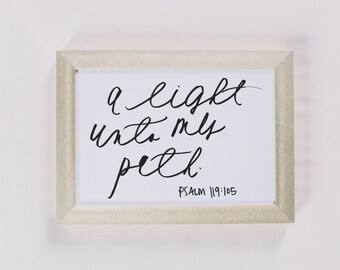 a light
unto my
path.
PSALM 119:105